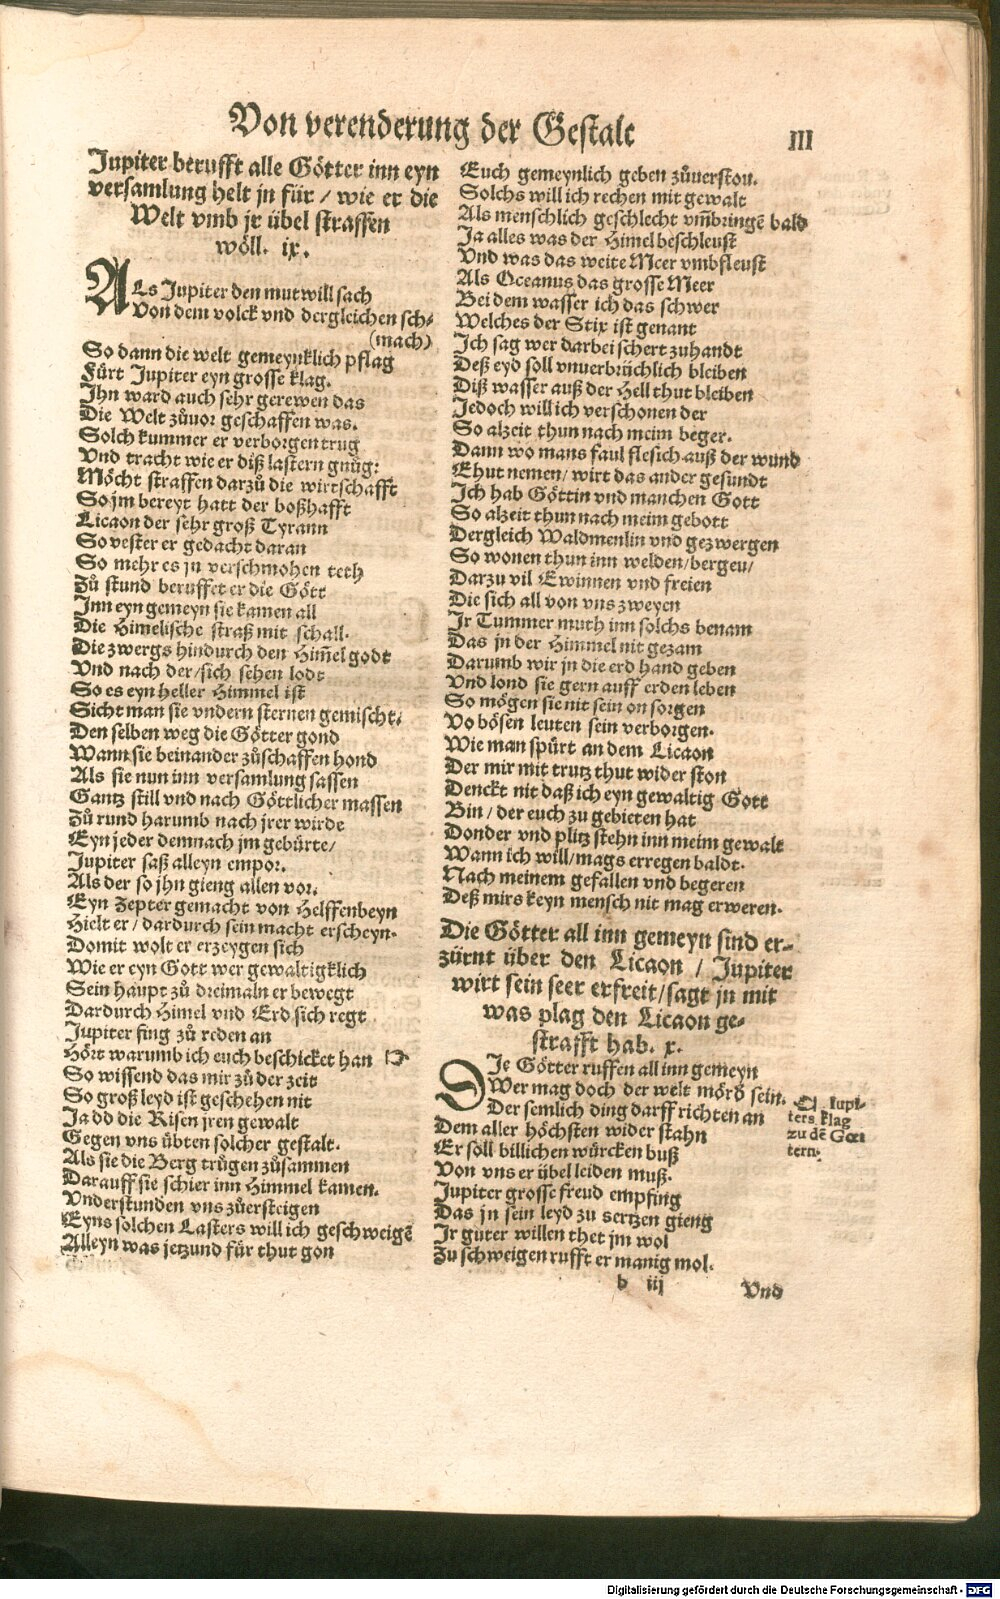 Von verenderung der Gestalt
III
Jupiter berufft alle Götter inn eyn
versamlung helt jn für / wie er die
Welt vmb jr übel straffen
wöll. ix.
ALs Jupiter den mutwill sach
Von dem volck vnd dergleichen sch⸗
(mach)
So dann die welt gemeynklich pflag
Fürt Jupiter eyn grosse klag.
Ihn ward auch sehr gerewen das
Die Welt zůuor geschaffen was.
Solch kummer er verborgen trug
Vnd tracht wie er diß lastern gnůg:
Möcht straffen darzů die wirtschafft
So jm bereyt hatt der boßhafft
Licaon der sehr groß Tyrann
So vester er gedacht daran
So mehr es jn verschmohen teth
Zů stund beruffet er die Gött
Inn eyn gemeyn sie kamen all
Die Himelische straß mit schall.
Die zwergs hindurch den Him̃el godt
Vnd nach der/sich sehen lodt
So es eyn heller Himmel ist
Sicht man sie vndern sternen gemischt.
Den selben weg die Götter gond
Wann sie beinander zůschaffen hond
Als sie nun inn versamlung sassen
Gantz still vnd nach Göttlicher massen
Zů rund harumb nach jrer wirde
Eyn jeder demnach jm gebürte/
Jupiter saß alleyn empor.
Als der so jhn gieng allen vor.
Eyn Zepter gemacht von Helffenbeyn
Hielt er / dardurch sein macht erscheyn.
Domit wolt er erzeygen sich
Wie er eyn Gott wer gewaltigklich
Sein haupt zů dreimaln er bewegt
Dardurch Himel vnd Erd sich regt
Jupiter fing zů reden an
Hört warumb ich euch beschicket han ☞
So wissend das mir zů der zeit
So groß leyd ist geschehen nit
Ja do die Risen jren gewalt
Gegen vns übten solcher gestalt.
Als sie die Berg trůgen zůsammen
Darauff sie schier inn Himmel kamen.
Vnderstunden vns zůersteigen
Eyns solchen Lasters will ich geschweigē
Alleyn was jetzund für thut gon
Euch gemeynlich geben zůuerston.
Solchs will ich rechen mit gewalt
Als menschlich geschlecht vm̃bringē bald
Ja alles was der Himel beschleust
Vnd was das weite Meer vmbfleust
Als Oceanus das grosse Meer
Bei dem wasser ich das schwer
Welches der Stix ist genant
Ich sag wer darbei schert zuhandt
Deß eyd soll vnuerbrüchlich bleiben
Diß wasser auß der Hell thut bleiben
Jedoch will ich verschonen der
So alzeit thun nach meim beger.
Dann wo mans faul flesich auß der wund
Thut nemen/ wirt das ander gesundt
Ich hab Göttin vnd manchen Gott
So alzeit thun nach meim gebott
Dergleich Waldmenlin vnd gezwergen
So wonen thun inn welden/bergen/
Darzu vil Ewinnen vnd freien
Die sich all von vns zweyen
Ir Tummer muth inn solchs benam
Das jn der Himmel nit gezam
Darumb wir jn die erd hand geben
Vnd lond sie gern auff erden leben
So mögen sie nit sein on sorgen
Vo bösen leuten sein verborgen.
Wie man spürt an dem Licaon
Der mir mit trutz thut wider ston
Denckt nit daß ich eyn gewaltig Gott
Bin / der euch zu gebieten hat
Donder vnd plitz stehn inn meim gewalt
Wann ich will/mags erregen baldt.
Nach meinem gefallen vnd begeren
Deß mirs keyn mensch nit mag erweren.
Die Götter all inn gemeyn sind er⸗
zürnt über den Licaon / Jupiter
wirt sein seer erfreit/sagt jn mit
was plag den Licaon ge⸗
strafft hab. x.
DIe Götter ruffen all inn gemeyn
Wer mag doch der welt mörd̕ sein.
Der semlich ding darff richten an
Dem aller höchsten wider stahn
Er soll billichen würcken buß
Von vns er übel leiden muß.
Jupiter grosse freud empfing
Das jn sein leyd zu hertzen gieng
Ir guter willen thet jm wol
Zu schweigen rufft er manig mol.
Iupi-
ters klag
zu dē Göt
tern.
b iij
Vnd
Digitalisierung gefördert durch die Deutsche Forschungsgemeinschaft - DFG